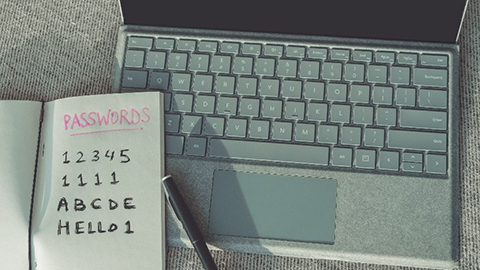 PASSWORDS
1 2 3 4 5
1 1 1 1
A B C D E
HELLO 1